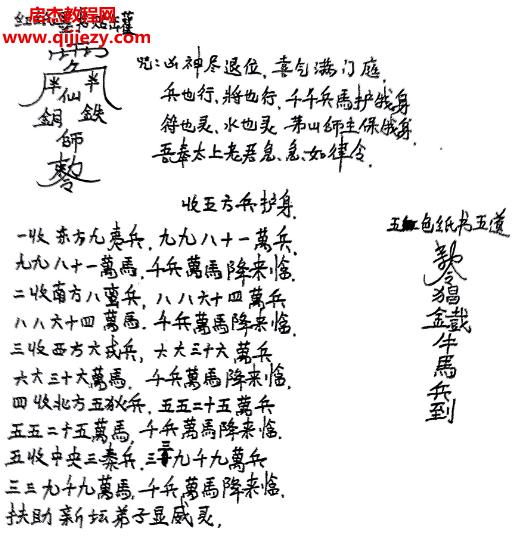 房杰教程网
www.qijiezy.com
半 半
仙
銅 鉄
師
敕令
咒：凶神尽退位，喜气满门庭，
兵也行，將也行，千千兵馬护我身
符也灵，水也灵 茅山師主保我身，
吾奉太上老君急急如律令。
收五方兵护身，
一收东方九夷兵，九九八十一萬兵，
九九八十一萬馬，千兵萬馬降来临，
二收南方八蛮兵，八八六十四萬兵
八八六十四萬馬．千兵萬馬降来临，
三收西方六戎兵，六六三十六萬兵
六六三十六萬馬，千兵萬馬降来临，
四收北方五狄兵，五五二十五萬兵
五五二十五萬馬，千兵萬馬降来临，
五收中央三秦兵，三三九千九萬兵
三三九千九萬馬，千兵萬馬降来临，
扶助新坛弟子显威灵，
五红色纸书五道
敕令猖鐵牛馬兵到